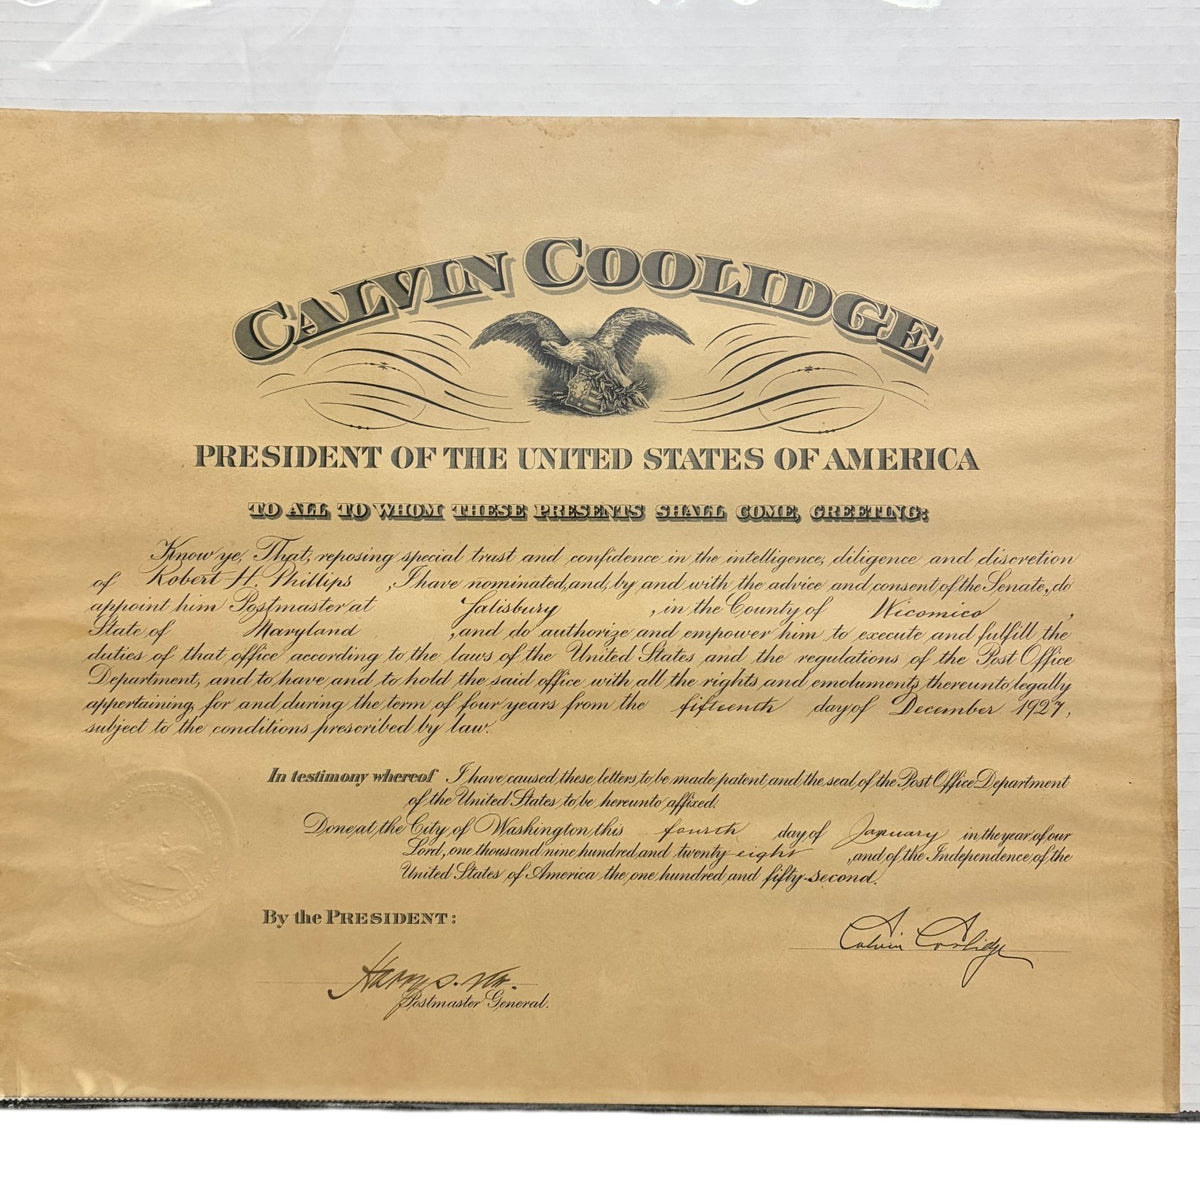 CALVIN COOLIDGE
PRESIDENT OF THE UNITED STATES OF AMERICA
TO ALL TO WHOM THESE PRESENTS SHALL COME, GREETING:
Know ye, That, reposing special trust and confidence in the intelligence, diligence and discretion
of Robert H. Phillips, I have nominated, and, by and with the advice and consent of the Senate, do
appoint him Postmaster at Salisbury, in the County of Wicomico,
State of Maryland, and do authorize and empower him to execute and fulfill the
duties of that office according to the laws of the United States and the regulations of the Post Office
Department, and to have and to hold the said office with all the rights and emoluments thereunto legally
appertaining, for and during the term of four years from the fifteenth day of December 1927,
subject to the conditions prescribed by law.
In testimony whereof I have caused these letters to be made patent, and the seal of the Post Office Department
of the United States to be hereunto affixed.
Done at the City of Washington this fourth day of January in the year of our
Lord, one thousand nine hundred and twenty eight, and of the Independence of the
United States of America the one hundred and fifty-second.
By the PRESIDENT:
Calvin Coolidge
Harry S. New.
Postmaster General.